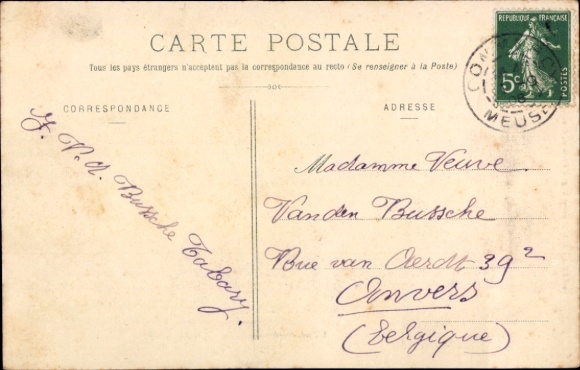 CARTE POSTALE
Tous les pays étrangers n'acceptent pas la correspondance au recto (Se renseigner à la Poste)
CORRESPONDANCE
ADRESSE
RÉPUBLIQUE FRANÇAISE
5c
POSTES
COM
MEUSE
J. V. d. Bussche Tabary.
Madamme Veuve
Van den Bussche
Rue van Aerdt 39²
Anvers
(Belgique)